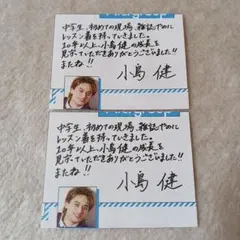 中学生、初めての現場、雑誌やめに
レッスン着を持っていきました。
20年以上、小島健の成長を
見守っていただきありがとうございました!!
またね!!
小島 健
中学生、初めての現場、雑誌やめに
レッスン着を持っていきました。
20年以上、小島健の成長を
見守っていただきありがとうございました!!
またね!!
小島 健